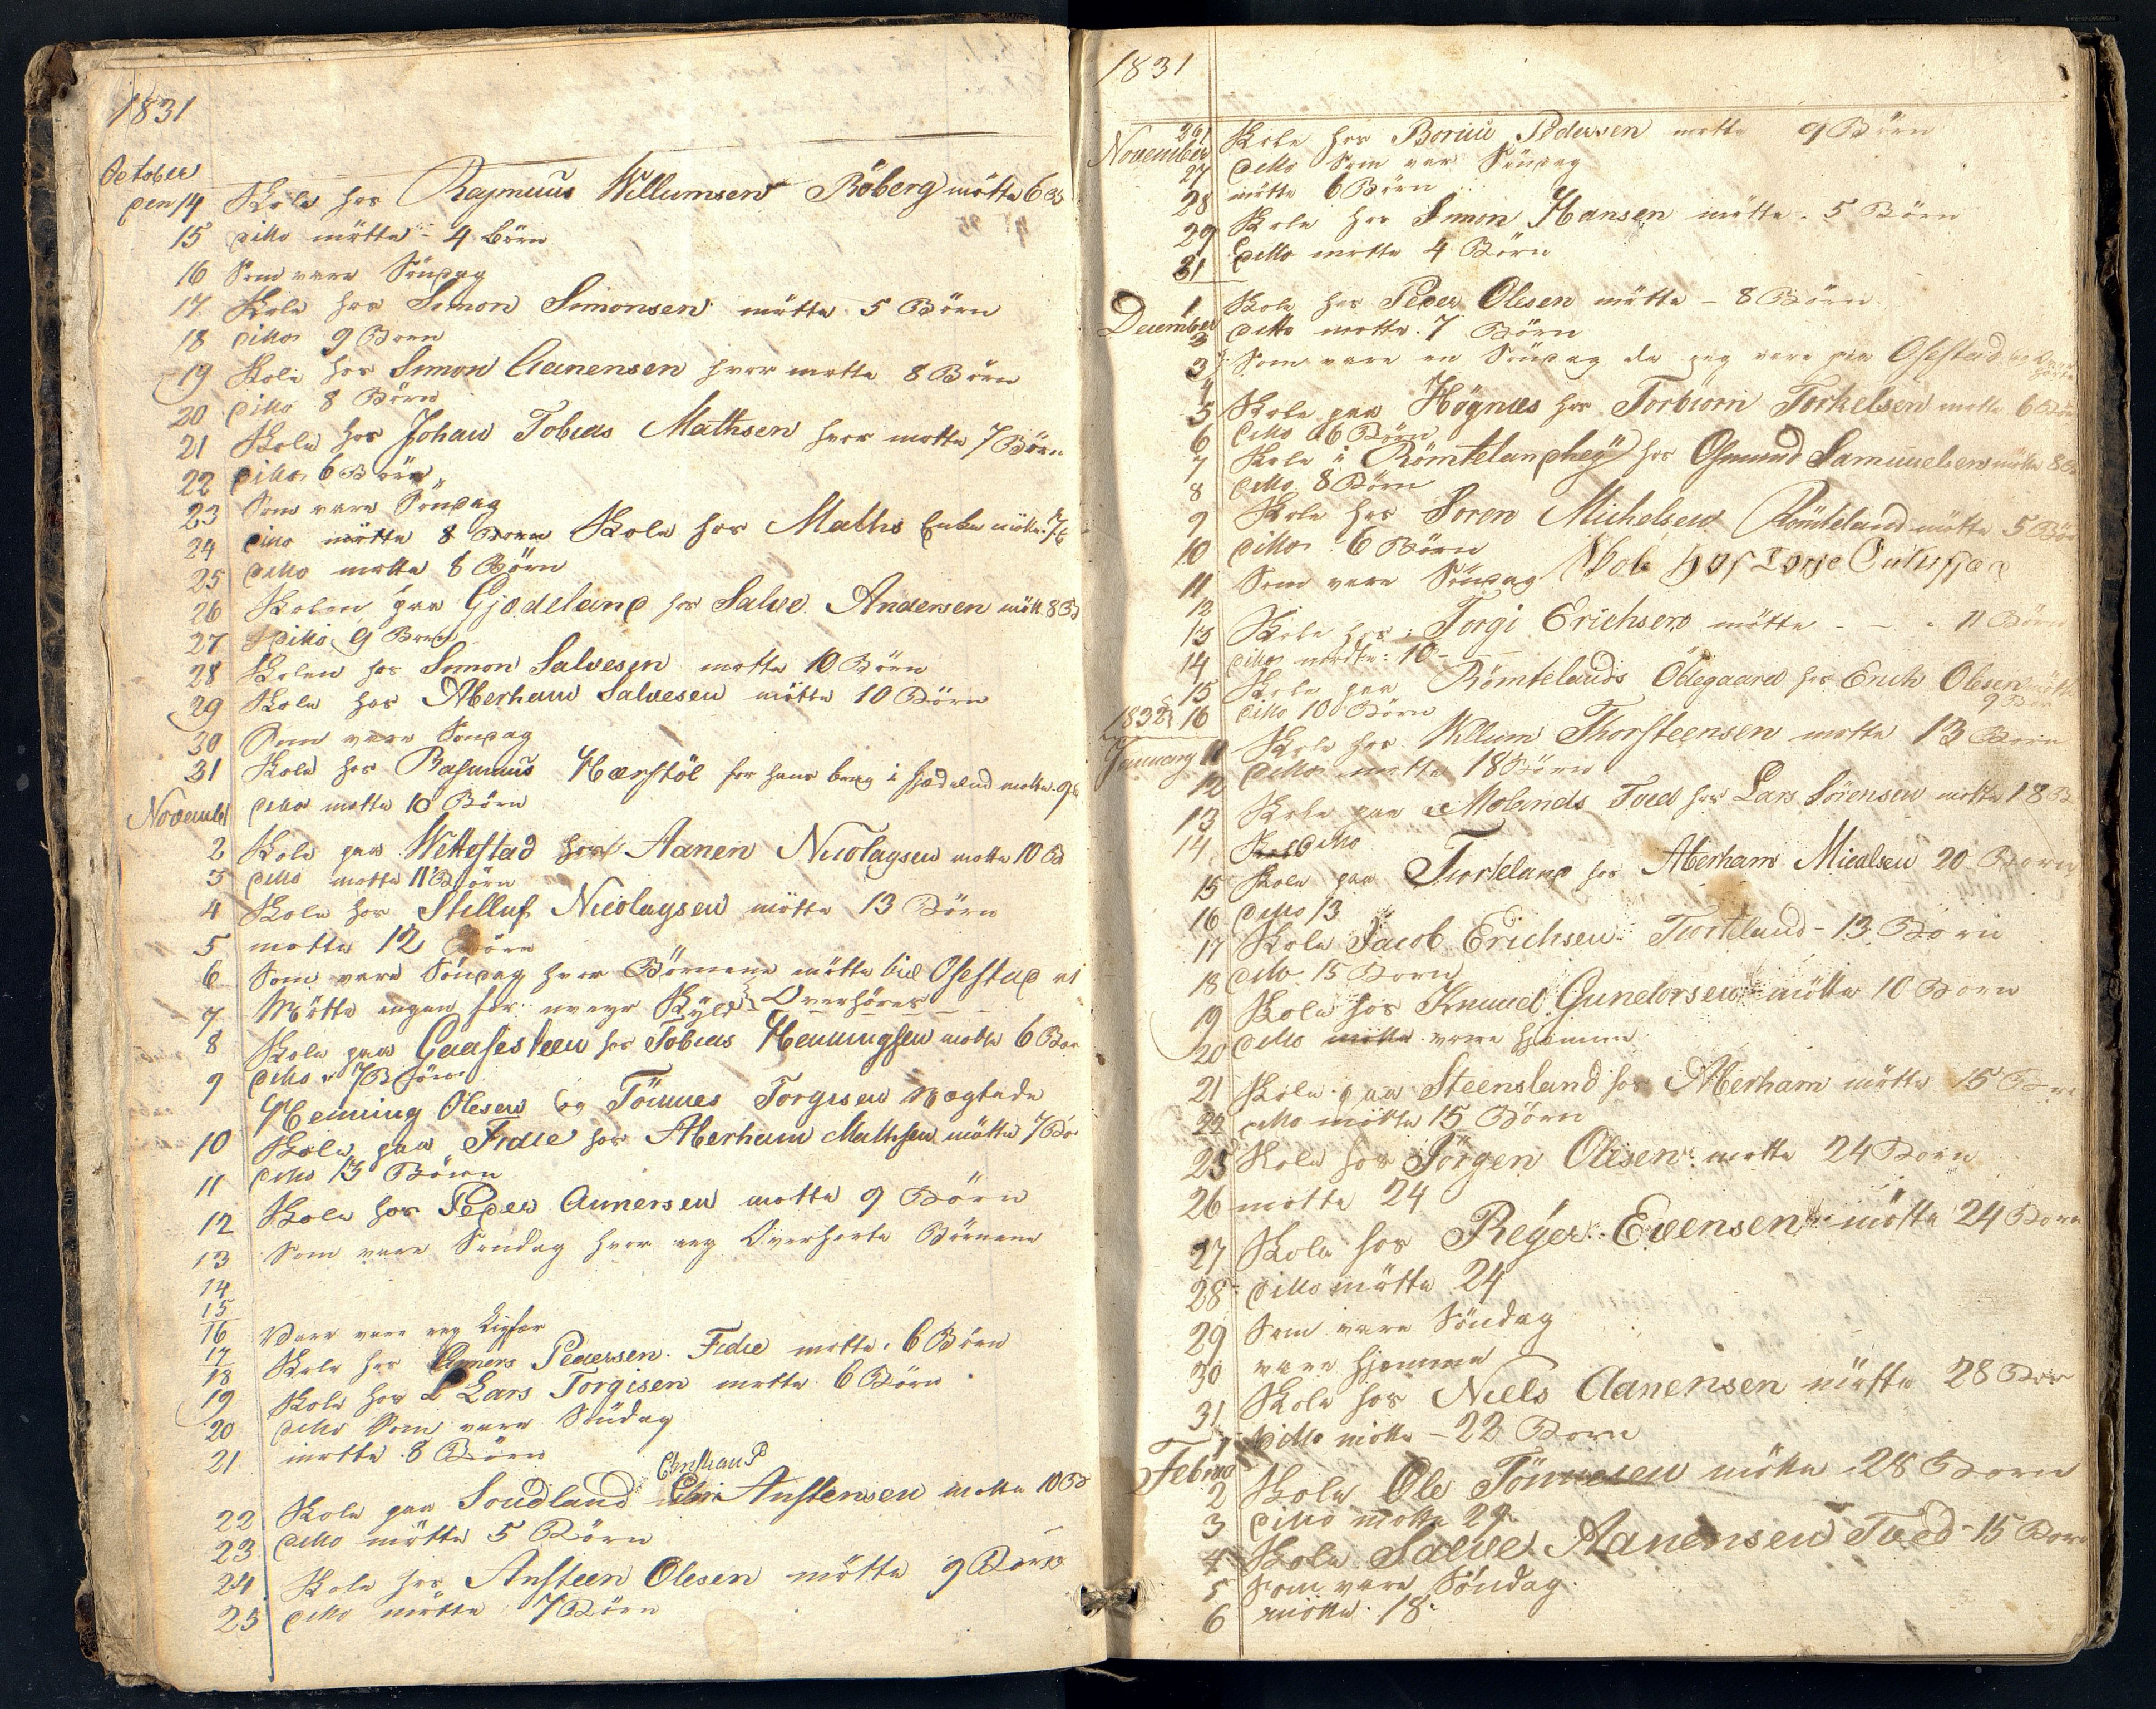 1831
October
den 14 Skole hos Rasmuus Willumsen Röberg mötte 6 B
15 ditto mötte - 4 börn
16 Som vare Söndag
17 Skole hos Simon Simonsen mötte 5 Börn
18 ditto 9 Börn
19 Skole hos Simon Aanensen hvor motte 8 Börn
20 ditto 8 Börn
21 Skole hos Johan Tobias Mathsen hvor motte 7 Börn
22 ditto 6 Börn
23 Som vare Söndag
24 ditto mötte 8 Börn Skole hos Maths Enke mötte 7 B
25 ditto motte 8 Börn
26 Skolen paa Gjødeland hos Salve Andersen mött 8 B
27 ditto 9 Börn
28 Skolen hos Simon Salvesen motte 10 Börn
29 Skole hos Aberham Salvesen mötte 10 Börn
30 Som vare Söndag
31 Skole hos Rasmuus Hærstöl for hans brug i motte 9 B
November ditto motte 10 Börn
2 Skole paa Wettestad hos Aanen Nicolaysen motte 10 B
3 ditto motte 11 Börn
4 Skole hos Stilluf Nicolaysen mötte 13 Börn
5 motte 12 Börn
6 Som vare Söndag hvor Börnene mötte ved Osestad at
7 Mötte ingen for Skyld Overhöres
8 Skole paa Gaasesteen hos Tobias Henningsen motte 6 Bör
9 ditto 7 Börn
Henning Olesen og Tönnes Torgisen Nægtede
10 Skole paa Fidie hos Aberham Mathsen mötte 7 Bör
11 ditto 13 Börn
12 Skole hos Peder Annersen motte 9 Börn
13 Som vare Söndag hvor jeg Overhorte Börnene
14
15
16 Var jeg
17 Skole hos Anners Pedersen Fidie motte 6 Börn
18
19 Skole hos L Lars Torgisen motte 6 Börn
20 ditto Som vare Söndag
21 motte 8 Börn
22 Skole paa Soudland Anstensen motte 10 B
23 ditto mötte 5 Börn
24 Skole hos Ansteen Olesen mötte 9 Börn
25 ditto mötte 7 Börn
1831
November 26 Skole hos Boruu Pedersen motte 9 Börn
27 ditto Som var Söndag
28 mötte 6 Börn
29 Skole hos Simon Hansen mötte 5 Börn
31 ditto motte 4 Börn
December 1 Skole hos Peder Olesen mötte - 8 Börn
2 ditto motte 7 Börn
3 Som vare en Söndag da jeg vare paa Osestad
4
5 Skole paa Högnes hos Torbiorn Torkelsen motte 6 Börn
6 ditto 6 Börn
7 Skole i Römtelandhey hos Osmund Samuuelsen mötte 8 B
8 ditto 8 Börn
9 Skole hos Soren Michelsen Römteland mötte 5 Bör
10 ditto 6 Börn
11 Som vare Söndag
12
13 Skole hos Torgi Erichsen mötte - - - 11 Börn
14 ditto motte 10 -
15 Skole paa Römtelands Ödegaard hos Erich Olesen mötte 9 Bör
16 ditto 10 Börn
1832
January 11 Skole hos Willum Thorsteensen motte 13 Börn
12 ditto motte 18 Börn
13 Skole paa Molands Tved hos Lars Sörensen motte 18 B
14 ditto
15 Skole paa Tiorteland hos Aberham Micalsen 20 Börn
16 ditto 13
17 Skole Jacob Erichsen Tiorteland - 13 Börn
18 ditto 15 Börn
19 Skole hos Knuud Gundersen mötte 10 Börn
20 ditto motte vare hjemme
21 Skole paa Steensland hos Aberham mötte 15 Börn
22 ditto mötte 15 Börn
25 Skole hos Jörgen Olesen motte 24 Börn
26 motte 24
27 Skole hos Reyer Evensen mötte 24 Börn
28 ditto mötte 24
29 Som vare Söndag
30 vare hjemme
31 Skole hos Niels Aanensen mötte 28 Bör
Februa 1 ditto motte - 22 Börn
2 Skole Ole Tönnesen mötte 28 Börn
3 ditto motte 29
4 Skole Salve Aanensen Tved - 15 Börn
5 Som vare Söndag
6 mötte 18